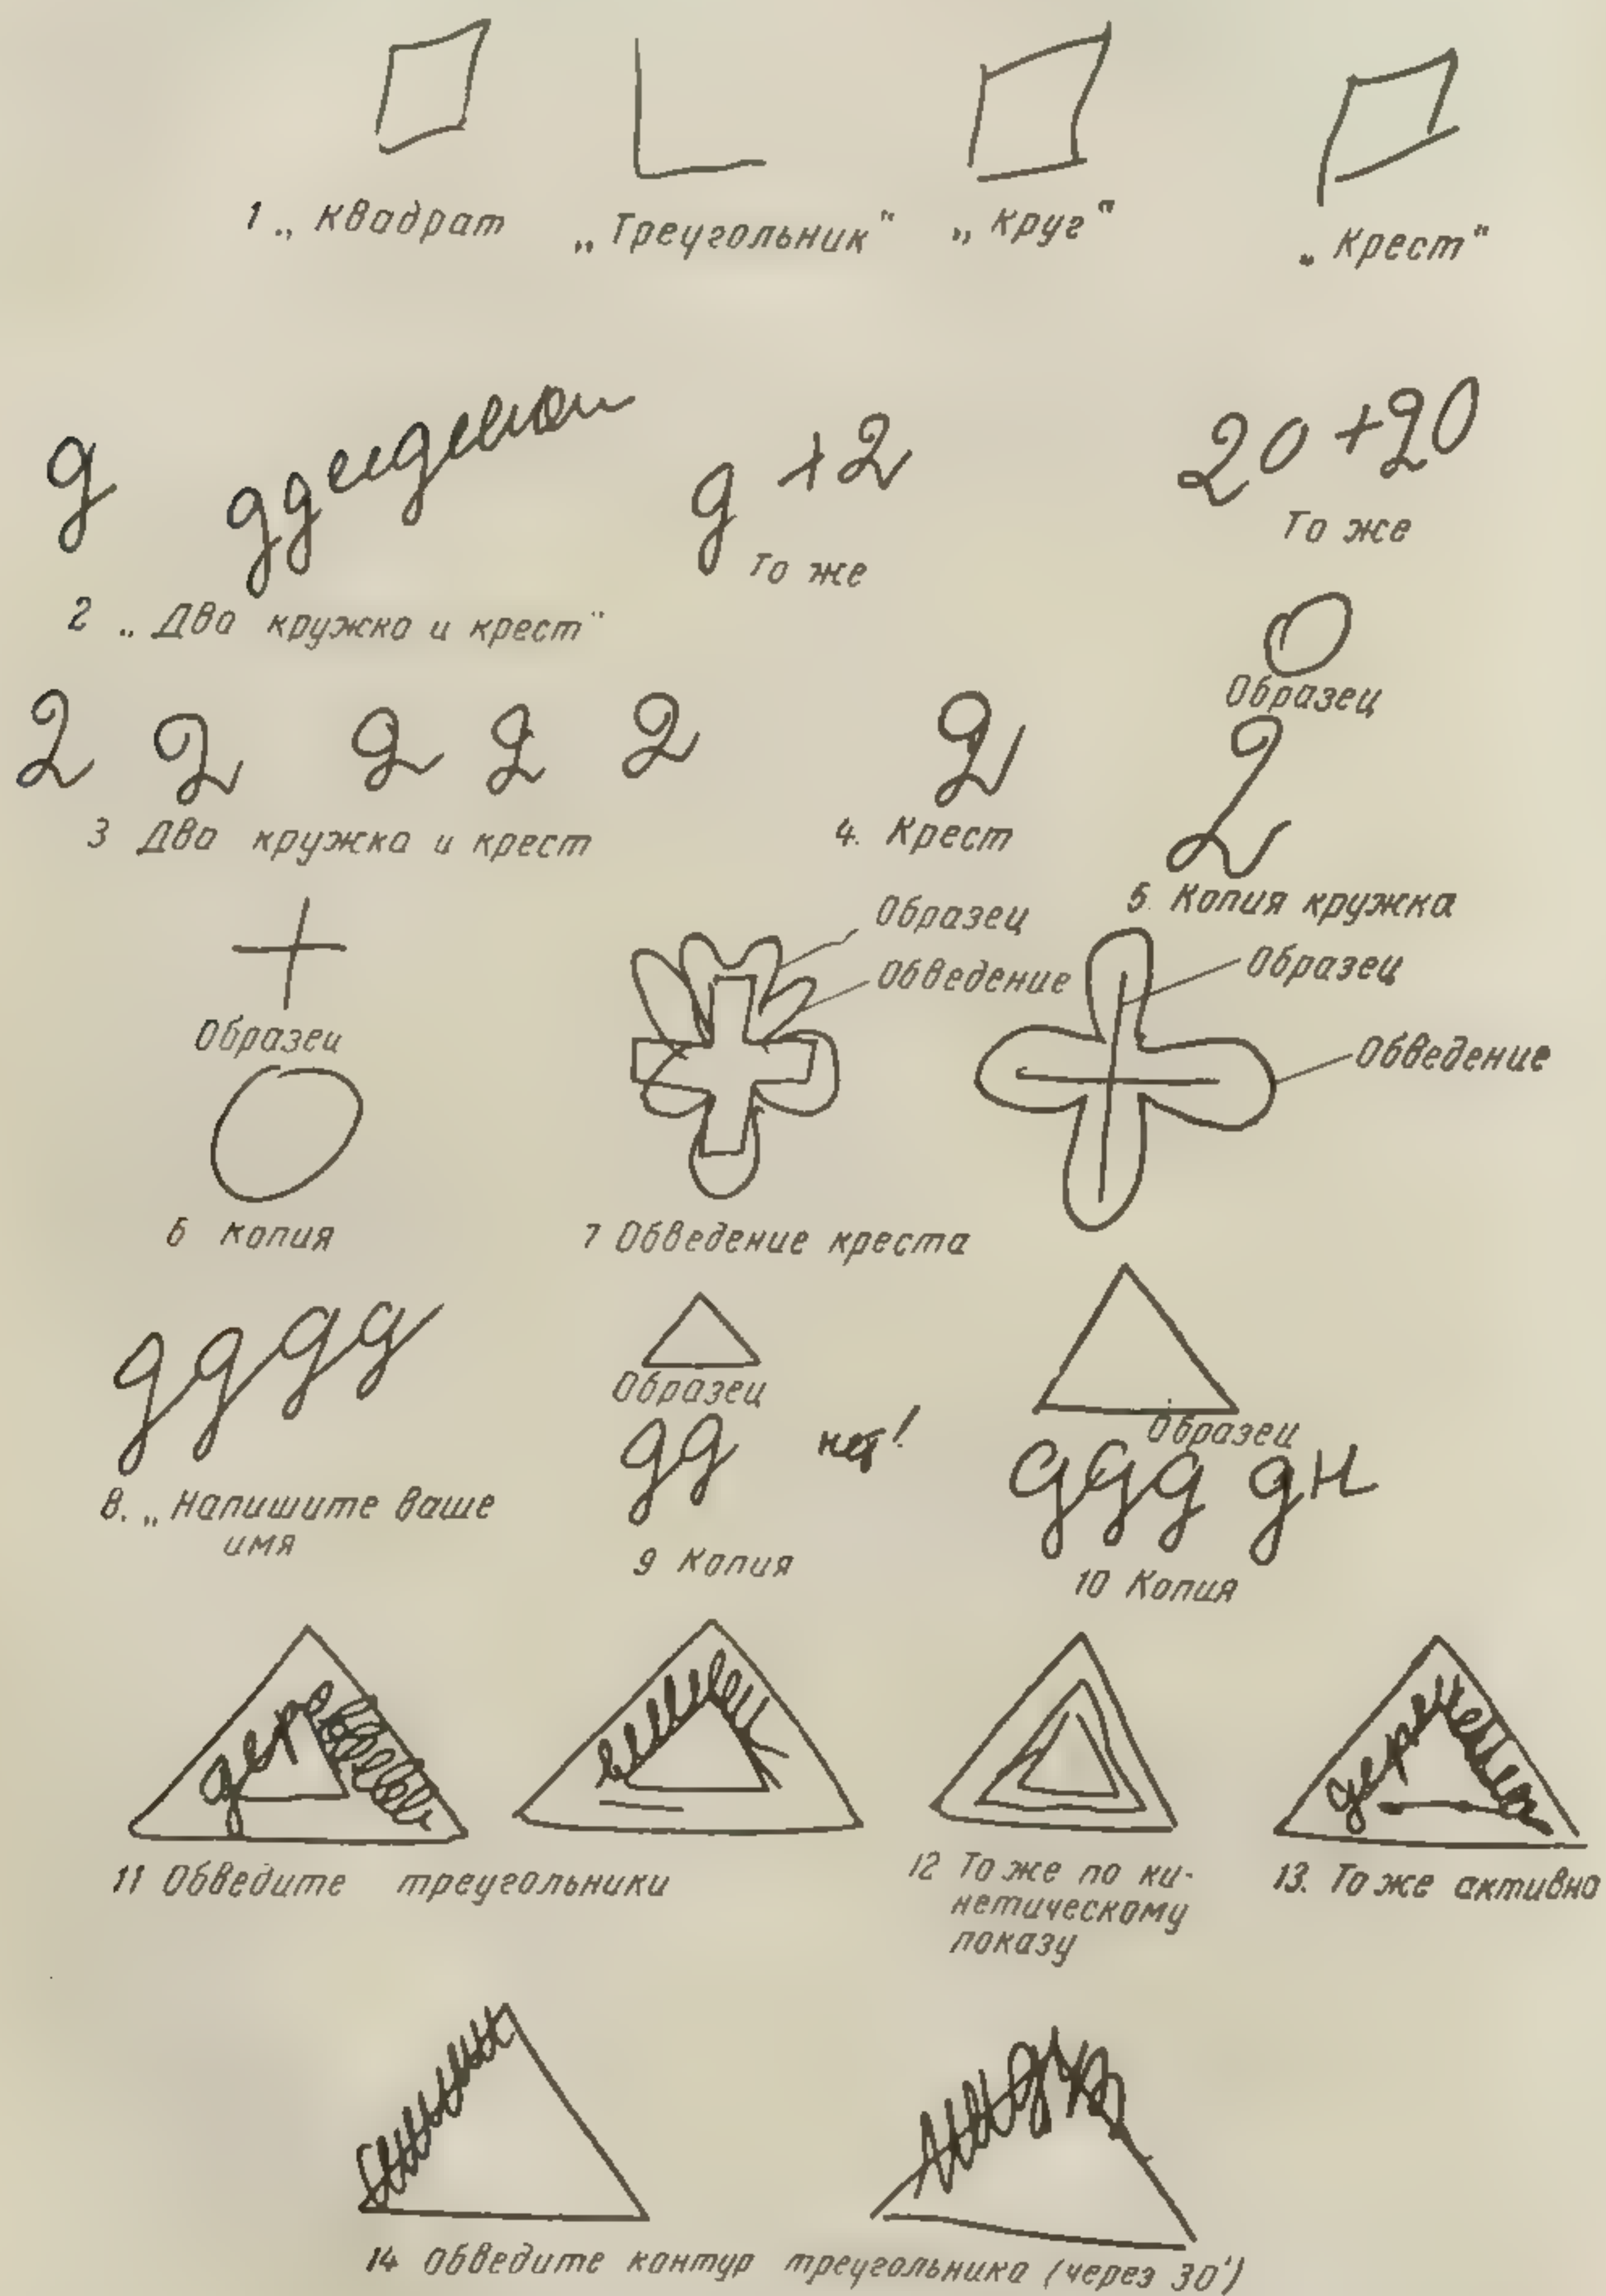 1 „ Квадрат „ Треугольник “ „ круг “ „ Крест “
g + 2
20 + 20
То же
То же
2 „ Два кружка и крест “
Образец
2 2 2 2 2
2
2
3 Два кружка и крест
4. Крест
5. Копия кружка
Образец
Обведение
Образец
Обведение
Образец
6 Копия
7 Обведение креста
gggg
Образец
gg нет!
Образец
ggg gн
8. „ Напишите ваше
имя
9 Копия
10 Копия
11 Обведите треугольники
12 То же по ки-
нетическому
показу
13. То же активно
14 Обведите контур треугольника (через 30')